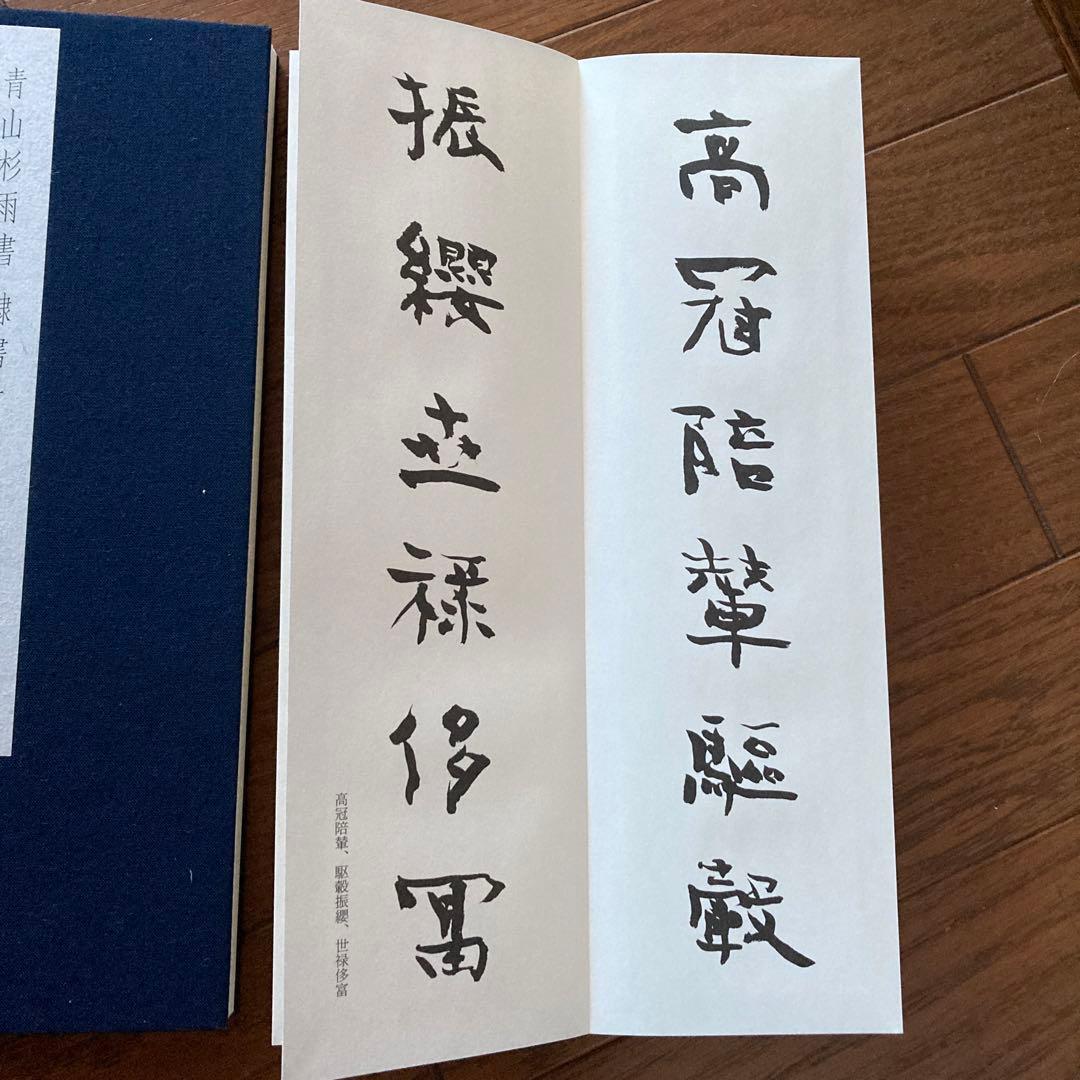 高冠陪輦驅轂
振纓世禄侈富
高冠陪輦、駆轂振纓、世禄侈富
青山杉雨書 隷書